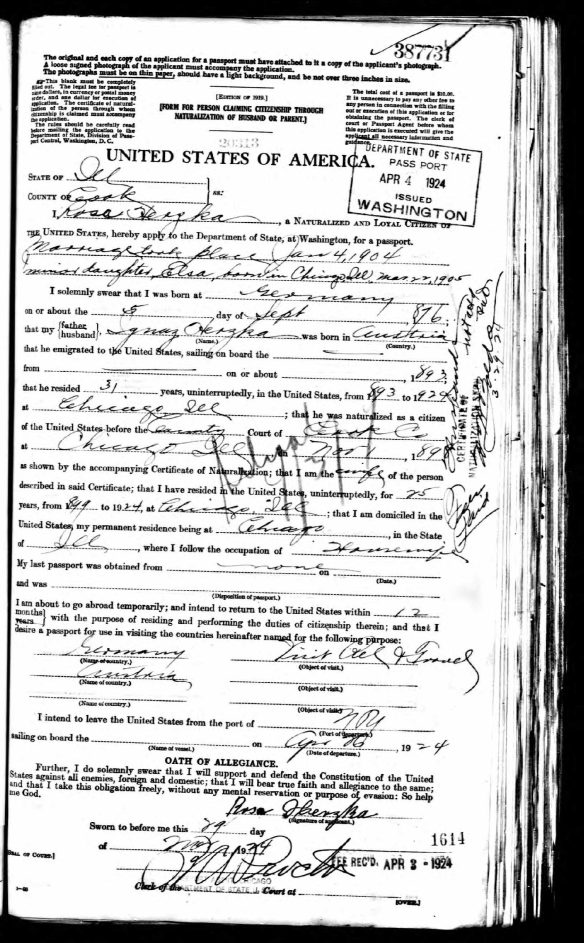 387731
The original and each copy of an application for a passport must have attached to it a copy of the applicant's photograph.
A loose signed photograph of the applicant must accompany the application.
The photographs must be on thin paper, should have a light background, and be not over three inches in size.
This blank must be completely
filled out. The legal fee for passport is
one dollar, in currency or postal money
order, and one dollar for execution of
application. The certificate of natural-
ization of the person through whom
citizenship is claimed must accompany
the application.
The rules should be carefully read
before mailing the application to the
Department of State, Division of Pass-
port Control, Washington, D. C.
[EDITION OF 1919.]
[FORM FOR PERSON CLAIMING CITIZENSHIP THROUGH
NATURALIZATION OF HUSBAND OR PARENT.]
20313
The total cost of a passport is $10.00.
It is unnecessary to pay any other fee to
any person in connection with the filling
out or execution of this application or for
obtaining the passport. The clerk of
court or Passport Agent before whom
this application is executed will give the
applicant all necessary information and
guidance.
UNITED STATES OF AMERICA.
DEPARTMENT OF STATE
PASS PORT
APR 4 1924
ISSUED
WASHINGTON
STATE OF Ill
COUNTY OF Cook ss:
I, Rosa Herzka, a NATURALIZED AND LOYAL CITIZEN OF
THE UNITED STATES, hereby apply to the Department of State, at Washington, for a passport.
Marriage took place Jan 4, 1904
minor daughter, Elsa, born in Chicago Ill, Mar 22, 1905
I solemnly swear that I was born at Germany
on or about the 5 day of Sept 1876.
that my {father husband}, Ignaz Herzka was born in Austria
(Name.) (Country.)
that he emigrated to the United States, sailing on board the
from on or about , 1893
that he resided 31 years, uninterruptedly, in the United States, from 1893 to 1924
at Chicago Ill ; that he was naturalized as a citizen
of the United States before the County Court of Cook Co
at Chicago Ill on Nov 1, 1898
as shown by the accompanying Certificate of Naturalization; that I am the wife of the person
described in said Certificate; that I have resided in the United States, uninterruptedly, for 25
years, from 1899 to 1924, at Chicago, Ill ; that I am domiciled in the
United States, my permanent residence being at Chicago, in the State
of Ill, where I follow the occupation of Housewife
My last passport was obtained from none on
(Date.)
and was
(Disposition of passport.)
I am about to go abroad temporarily; and intend to return to the United States within 12
{months years} with the purpose of residing and performing the duties of citizenship therein; and that I
desire a passport for use in visiting the countries hereinafter named for the following purpose:
Germany Visit Rel & Travel
(Name of country.) (Object of visit.)
Austria
(Name of country.) (Object of visit.)
(Name of country.) (Object of visit.)
I intend to leave the United States from the port of NY
(Port of departure.)
sailing on board the on Apr 26, 1924
(Name of vessel.) (Date of departure.)
OATH OF ALLEGIANCE.
Further, I do solemnly swear that I will support and defend the Constitution of the United
States against all enemies, foreign and domestic; that I will bear true faith and allegiance to the same;
and that I take this obligation freely, without any mental reservation or purpose of evasion: So help
me God.
Rosa Herzka
(Signature of applicant.)
Sworn to before me this 29 day
1614
of Mar, 1924
FEE REC'D. APR 3 - 1924
[SEAL OF COURT.]
CHICAGO
DEPARTMENT OF STATE
Clerk of the Court at
[OVER.]